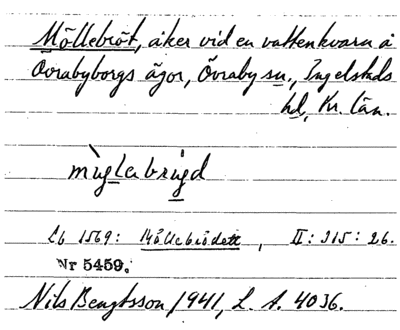 Möllebröt, åker vid en vattenkvarn å
Övrabyborgs ägor, Övraby sn., Ingelstads
hd, Kr. län.
mỳglebrìgd
Lb 1569: Möllebrödett, II: 315: 26.
Nr 5459.
Nils Bengtsson 1941, L. A. 4036.